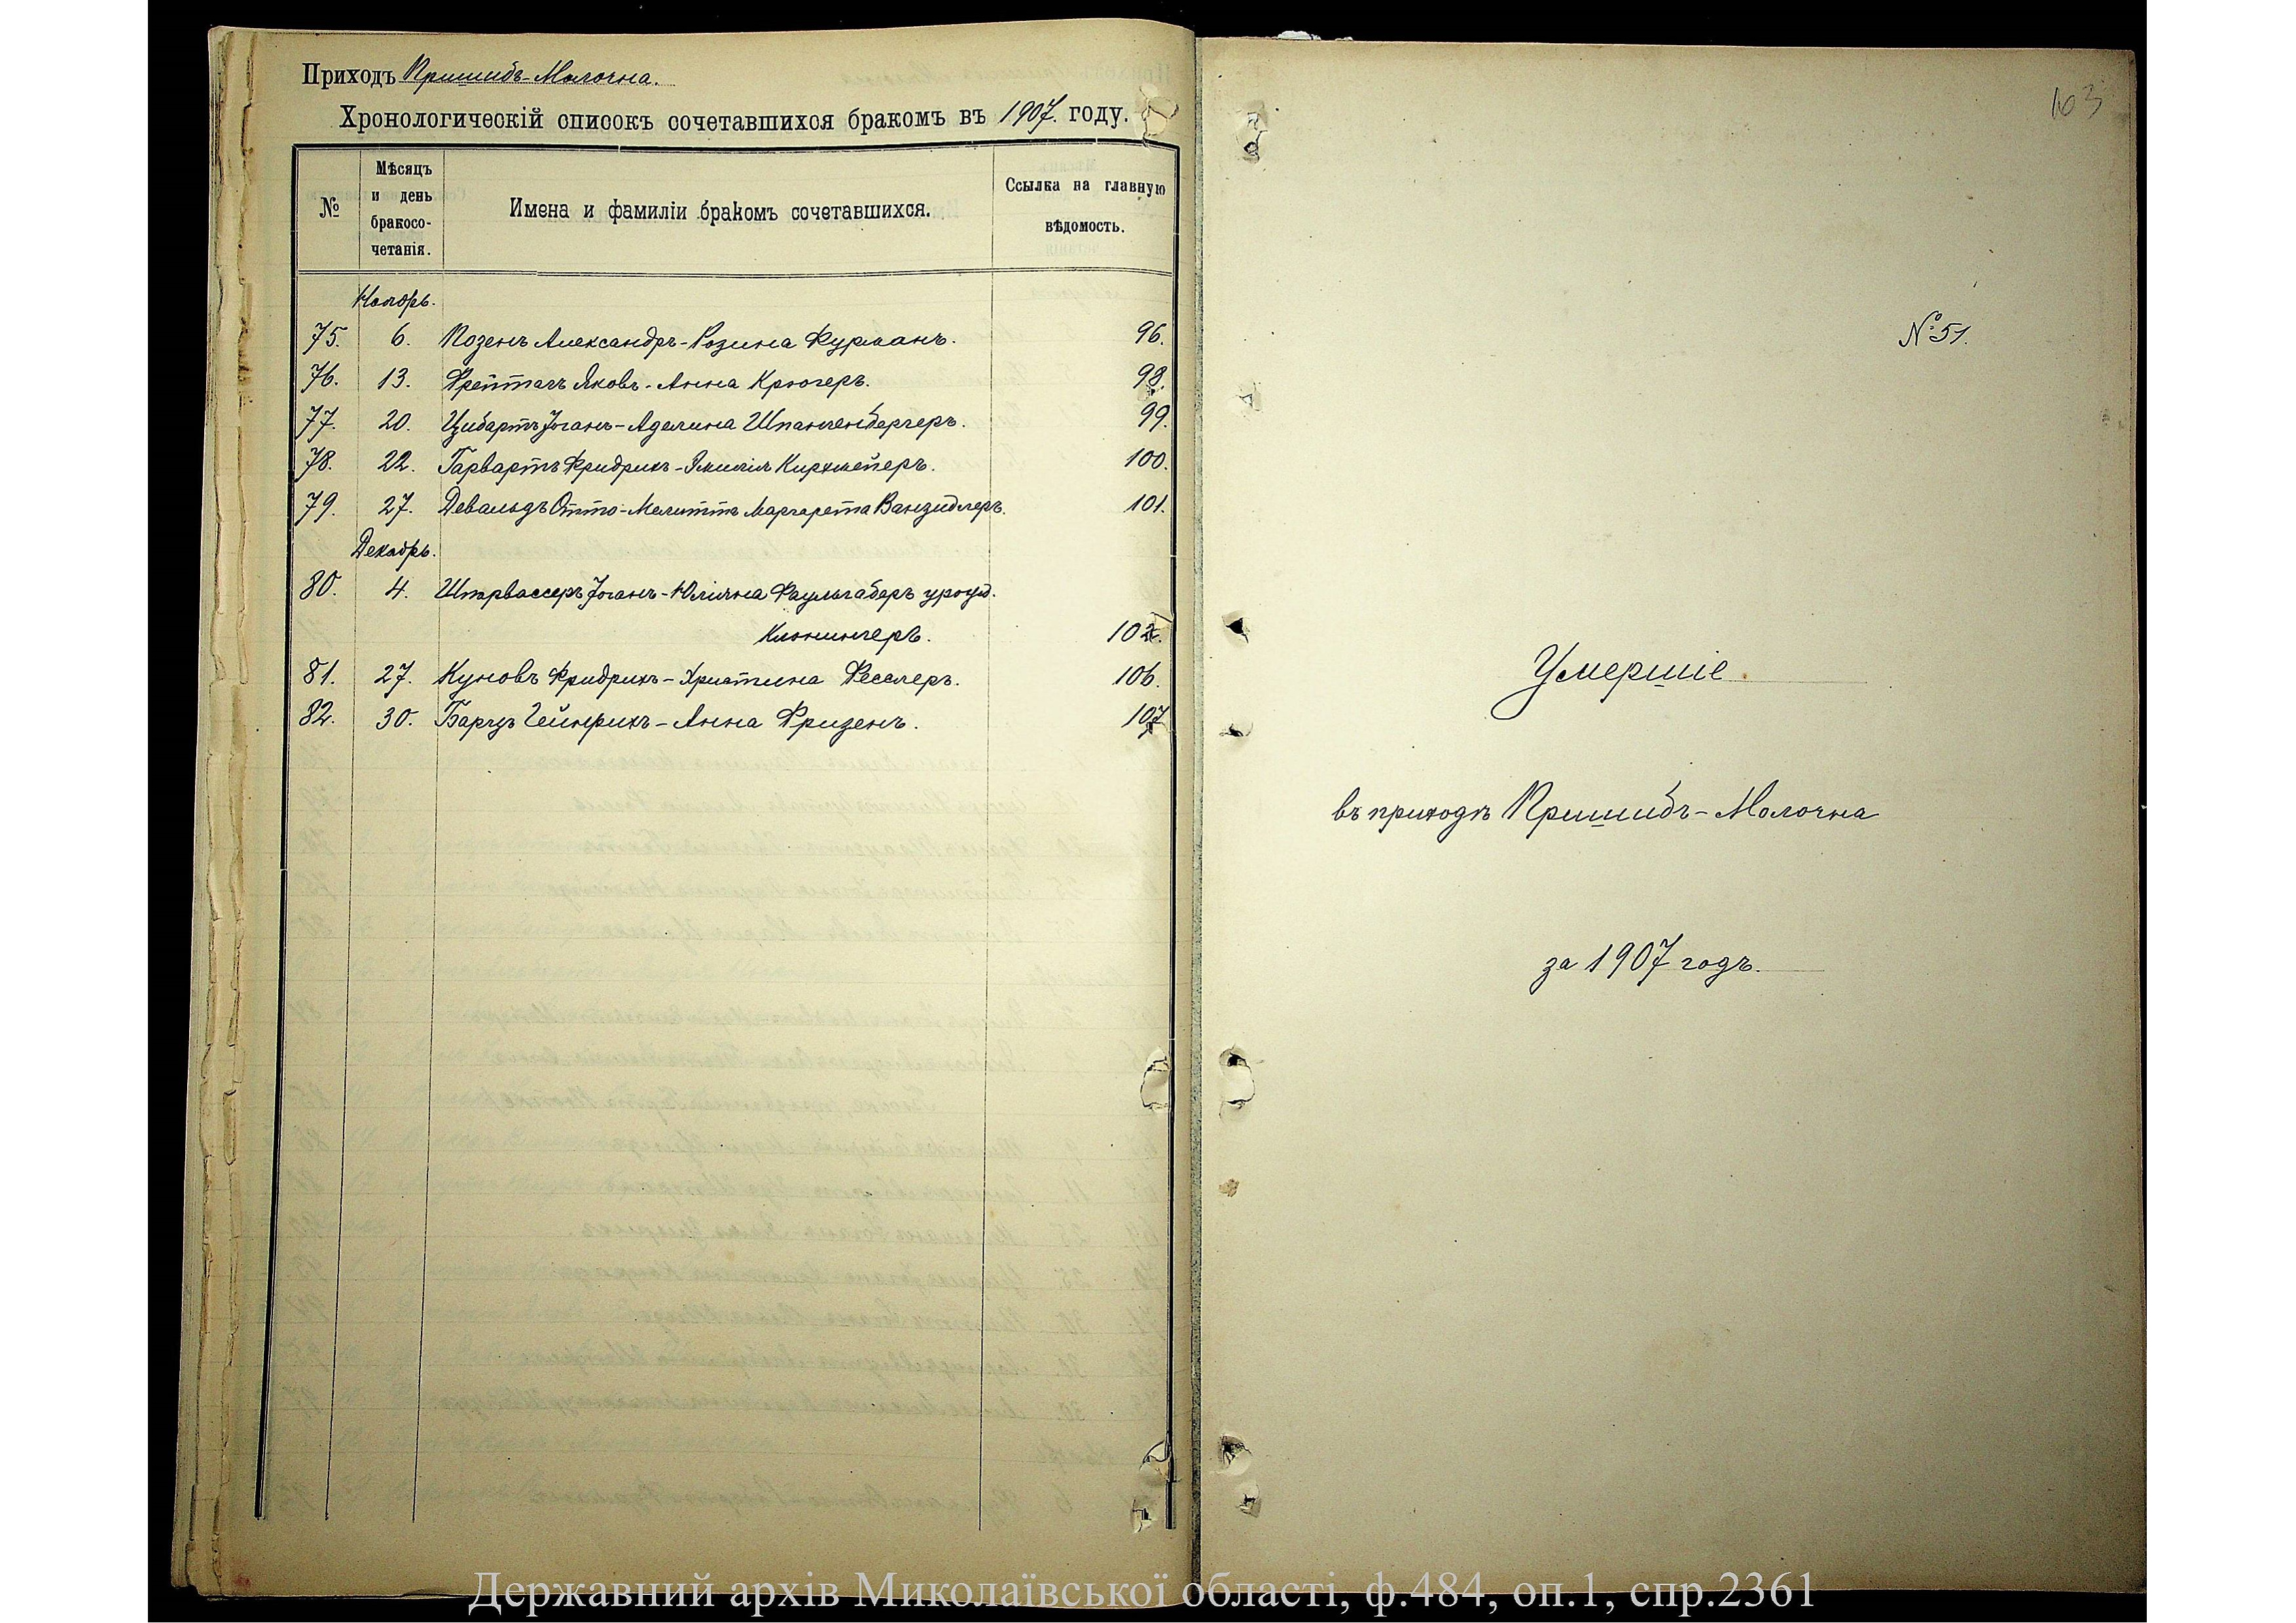 Приходъ Пришибъ-Молочна.
Хронологическій списокъ сочетавшихся бракомъ въ 1907. году.
№
Мѣсяцъ
и день
бракосо-
четанія.
Имена и фамиліи бракомъ сочетавшихся.
Ссылка на главную
вѣдомость.
Ноябрь.
75. 6. Позенъ Александръ-Розина Фурманъ. 96.
76. 13. Фрейтагъ Яковъ-Анна Крюгеръ. 98.
77. 20. Цибартъ Іоганъ-Аделина Шпангенбергеръ. 99.
78. 22. Гарвартъ Фридрихъ-Эмилія Кирхмейеръ. 100.
79. 27. Девальдъ Отто-Мелитта Маргарета Ванзидлеръ. 101.
Декабрь.
80. 4. Штарвассеръ Іоганъ-Юліяна Фаульгаберъ урожд.
Клонингеръ. 102.
81. 27. Куновъ Фридрихъ-Христина Фесслеръ. 106.
82. 30. Баргъ Гейнрихъ-Анна Фризенъ. 107
103
№51.
Умершіе.
въ приходѣ Пришибъ-Молочна
за 1907 годъ.
Державний архів Миколаївської області, ф.484, оп.1, спр.2361